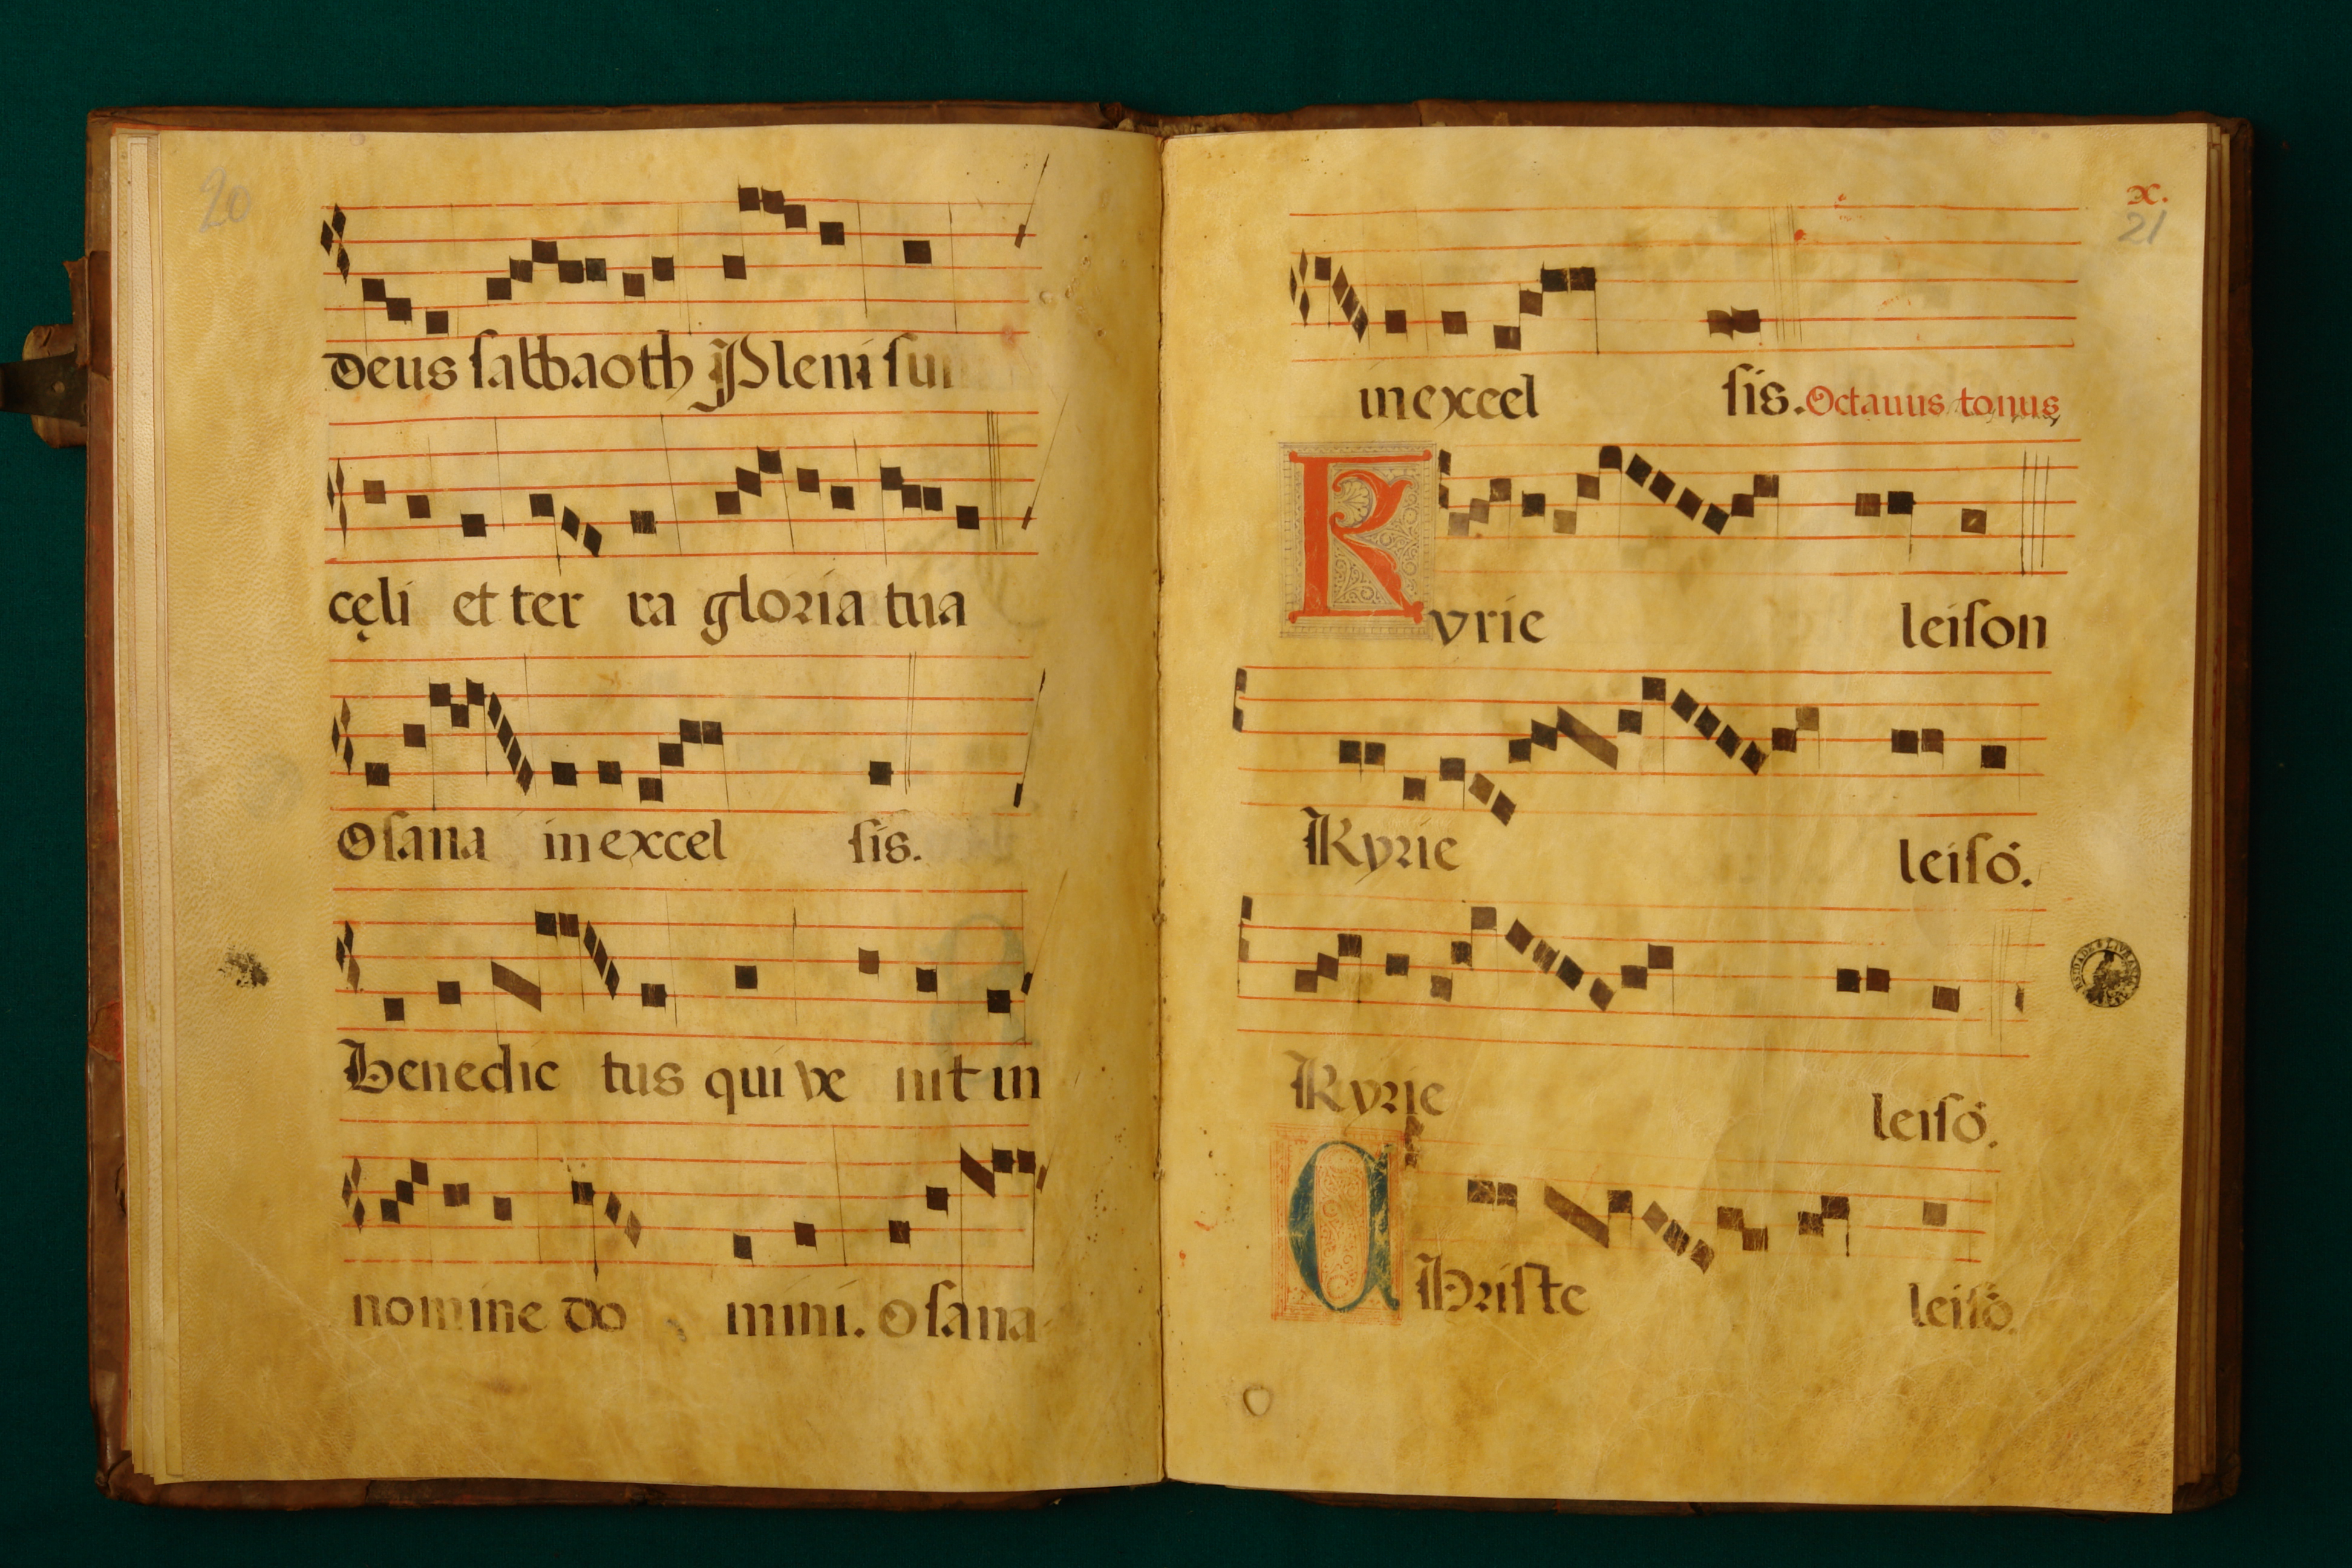 20
Deus sabbaoth Pleni sun
cęli et ter ra gloria tua
Osana in excel sis.
Benedic tus qui ve nit in
nomine do mini. Osana
x.
21
in excel sis. Octauus tonus
Kyrie leison
Kyrie leisō.
Kyrie leisō.
Christe leisō.